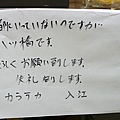 酔っていないのですが
八ッ橋です。
よろしくお願い致します。
失礼致します。
カラテカ 入江